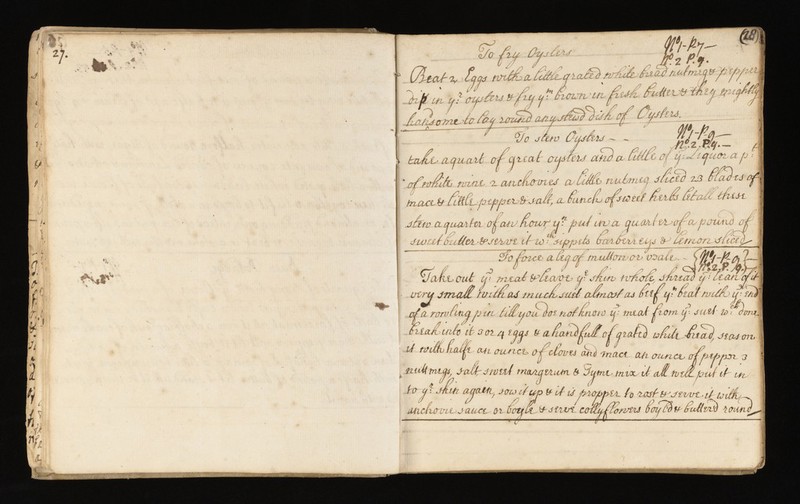 27.
28
To fry Oysters
No 1 - P 7 -
No. 2 P. 9.
Beat 2 Eggs with a little grated white bread nutmeg & pepper
dip in ye oysters & fry ym brown in fresh butter & they mightly
hansome to lay round any stewd dish of Oysters.
To stew Oysters - -
No 1 - P. 9 -
No. 2. P. 9. -
take a quart of great oysters and a little of ye Liquor a pt
of white wine 2 anchovies a little nutmeg sliced 23 blades of
mace & little pepper & salt, a bunch of sweet herbs let all these
stew a quarter of an hour yn put in a quarter of a pound of
sweet butter & serve it wth sippits barberreys & lemon sliced
To force a leg of mutton or veale -
No 1 - P. 9. -
No 2. P. 9.
Take out ye meat & leave ye skin whole shread ye lean of it
very small with as much suit almost as beef yn beat with ye end
of a rowling pin till you doe not know ye meat from ye suet wth done
break into it 3 or 4 eggs & a handfull of grated white bread, season
it with halfe an ounce of cloves and mace an ounce of pepper 3
nuttmegs, salt sweet margerum & Tyme mix it all well put it in
to ye skin again, sow it up & it is propper to rost & serve it with
anchovie sauce or boyle & serve collyflowers boyld & butterd round